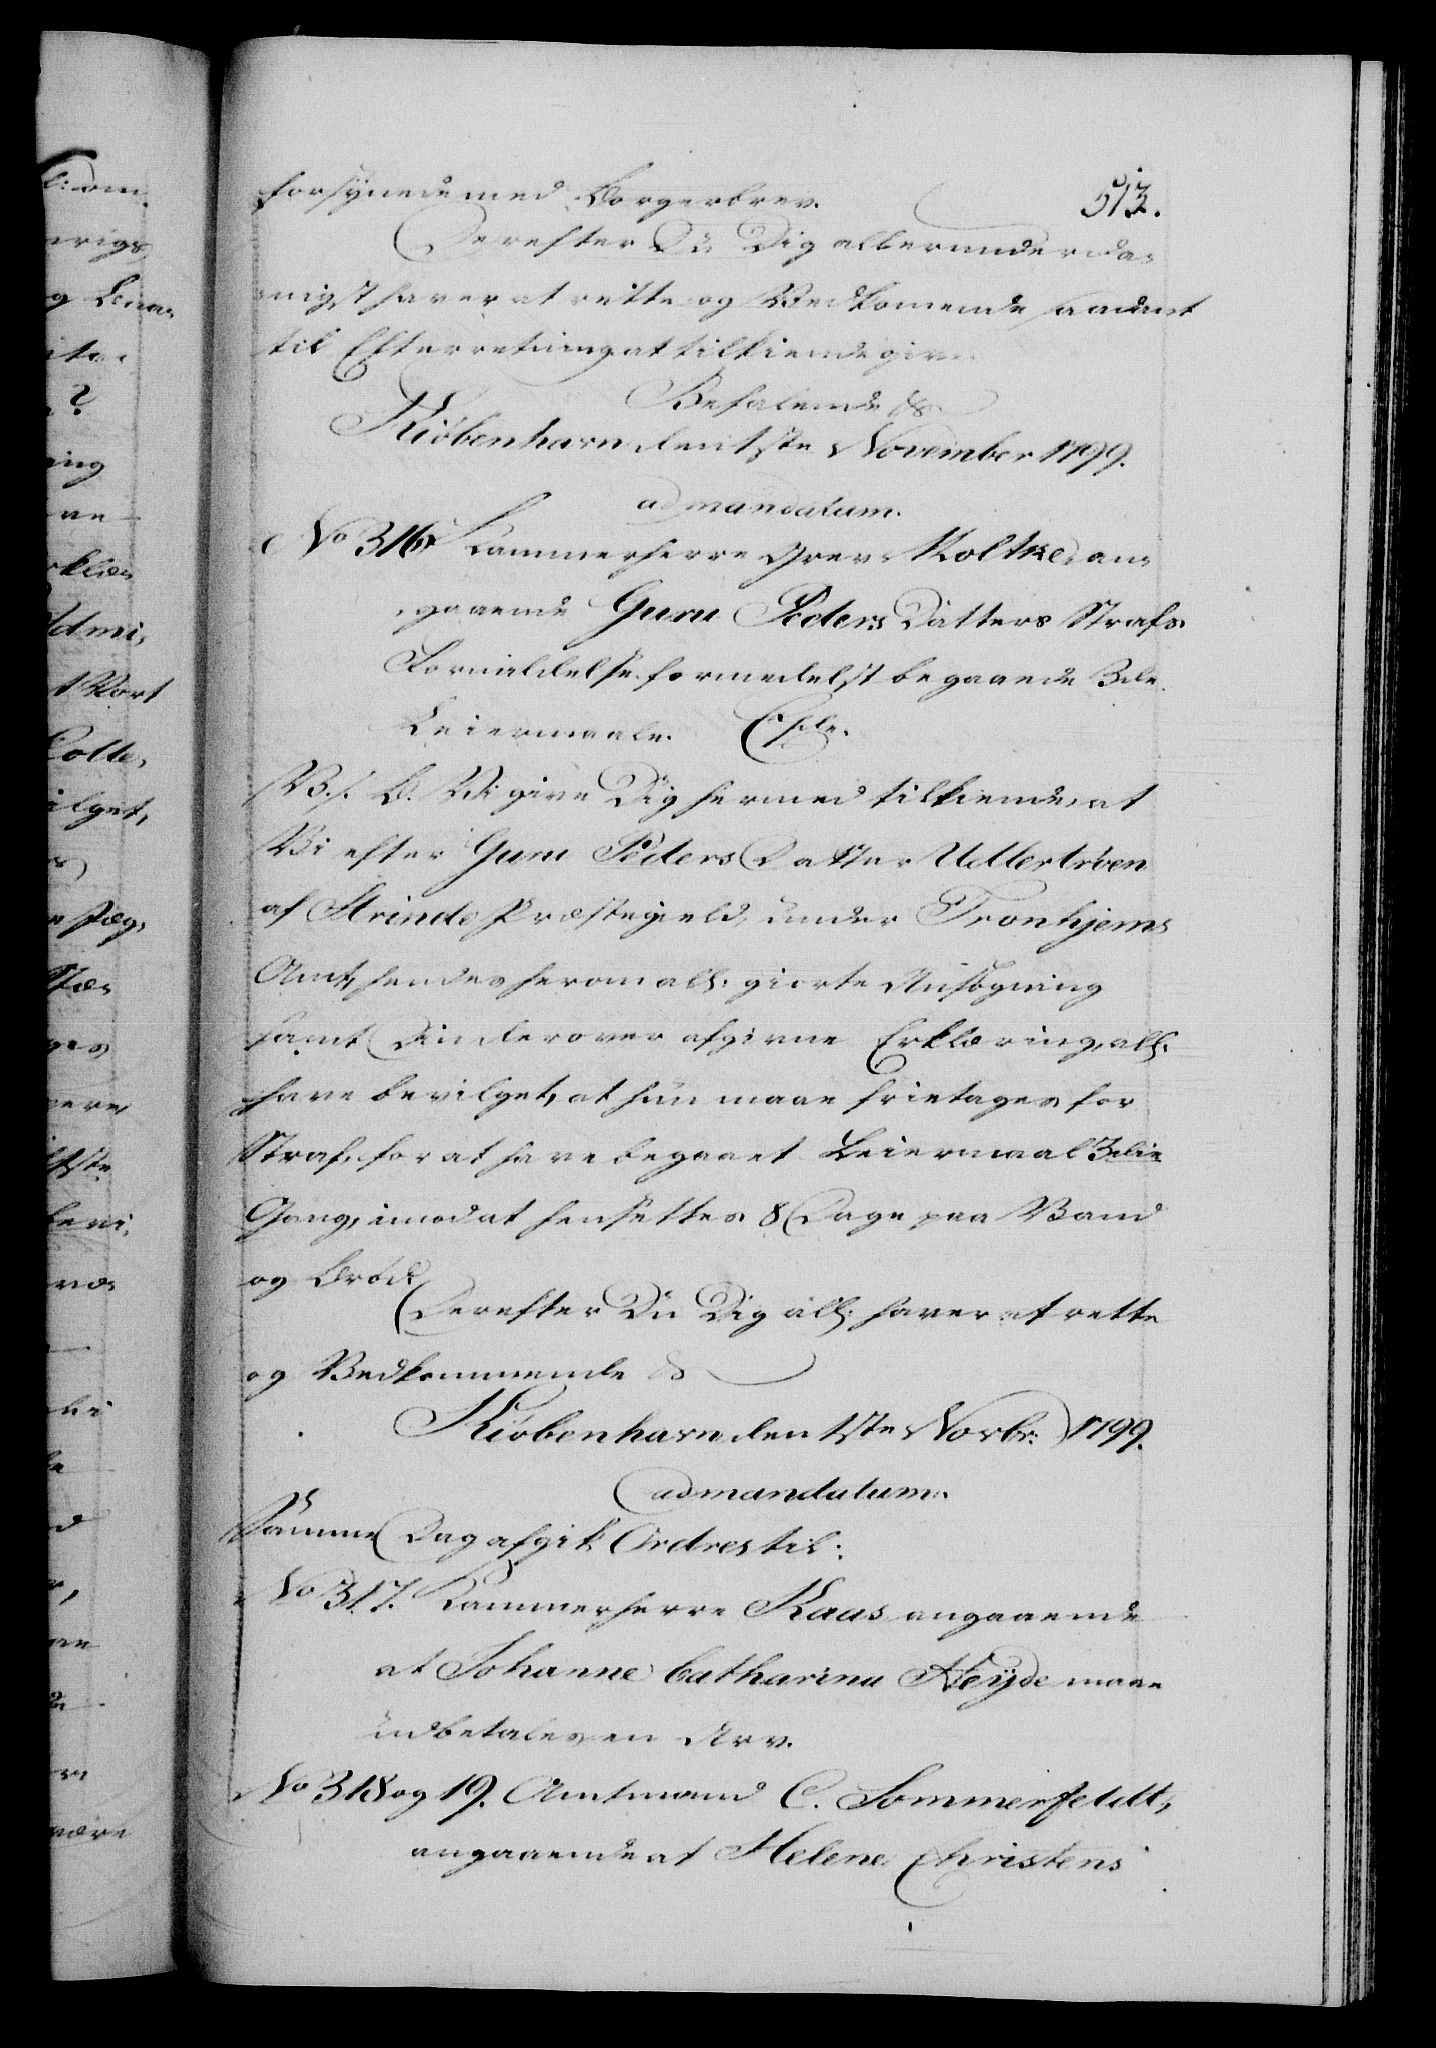 513.
forsynede med Borgerbrev.
Derefter Du Dig allerunderda-
nigst haver at rette og Vedkomende saadant
til Efterretning at tilkiendegive.
Befalende &c.
Kiöbenhavn den 1ste November 1799.
ad mandatum.
No 316 Kammerherre Grev Moltke, an-
gaaende Guru Peders Datters Strafs
Formildelse formedelst begaaende 3de
Leiermaale.
V. s. G. Vi give Dig hermed tilkiende, at
Vi efter Guru Peders Datter Udlertröen
af Strinde Præstegield, under Tronhjems
Amt, hendes herom all: giorte Ansögning
samt Din derover afgivne Erklæring, all:
have bevilget, at hun maae fritages for
Straf, for at have begaaet Leiermaal 3die
Gang, imod at hensettes 8 Dage paa Vand
og Bröd.
Derefter Du Dig all: haver at rette
og Vedkommende &
Kiöbenhavn den 1ste Novbr: 1799.
ad mandatum.
Samme Dag afgik Ordres til:
No 317. Kammerherre Kaas angaaende
at Johanne Catharina Heyde maae
udbetales en Arv.
No 318 og 19. Amtmand C. Sommerfeldt,
angaaende at Helene Christens